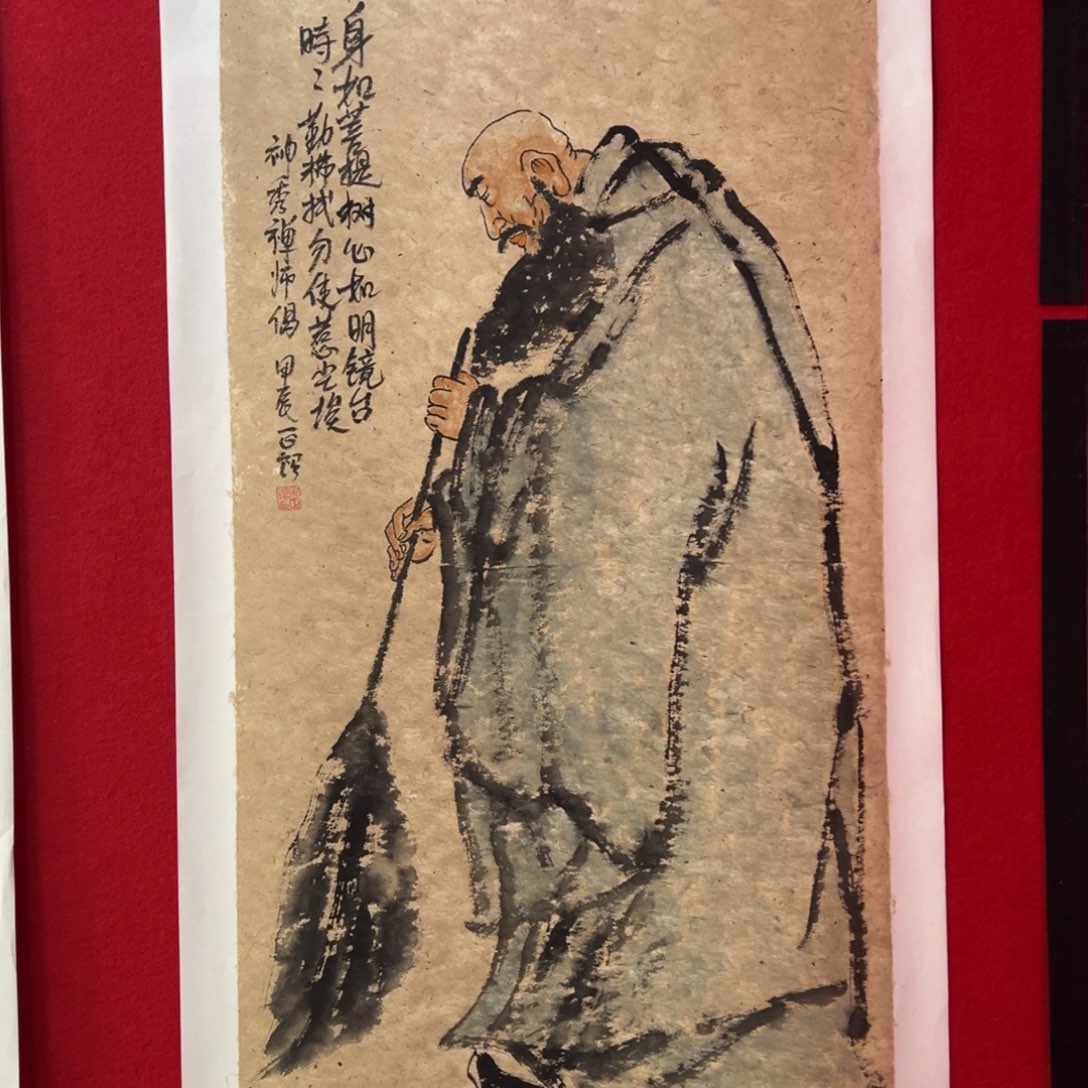 身如菩提树心如明镜台
時〻勤拂拭勿使惹尘埃
神秀禅师偈 甲辰一日